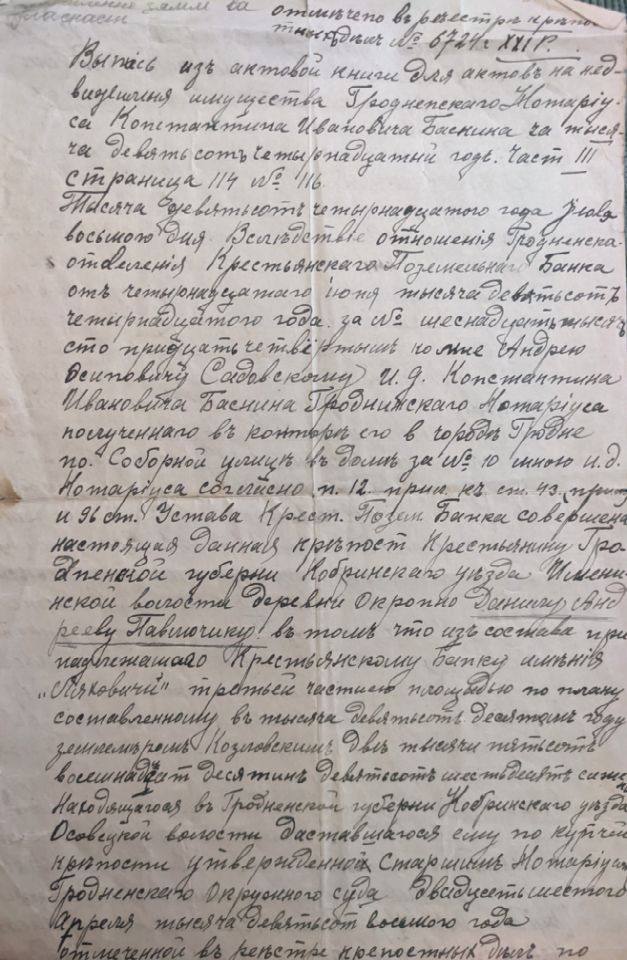 отмѣчено въ реэстрѣ крѣпо
тныхъ дѣлъ № 6724 г. XXI Р.
Выпись изъ актовой книги для актовъ на нед-
вижимыя имущества Гродненскаго Нотаріу-
са Константина Ивановича Баснина за тыся-
ча девятьсотъ четырнадцатый годъ. Част III
страница 114 № 116.
Тысяча девятьсотъ четырнадцатого года Июля
восьмого дня. Вслѣдствіе отношенія Гродненска-
отделенія Крестьянскаго Поземельнаго Банка
отъ четырнадцатаго іюня тысяча девятьсотъ
четырнадцатого года за № шеснадцать тысяч
сто тридцать четвёртымъ ко мне Андрею
Осиповичу Садовскому И. д. Константина
Ивановича Баснина Гродненскаго Нотаріуса
полученнаго въ конторѣ его в городѣ Гродне
по Соборной улицѣ въ домѣ за № 10 мною и. д.
Нотаріуса согласно п. 12. прил. къ ст. 43.
и 96 ст. Устава Крест. Позем. Банка совершена
настоящая данная крѣпост Крестьянину Гро-
дненской губерни Кобринскаго уѣзда Имени-
нской волости деревни Окропно Данилу Анд
рееву Павлючику въ томъ что изъ состава при
надлежашаго Крестьянскому Банку имѣнія
„Ляховичи" третьей частию площадью по плану
составленному въ тысяча девятьсотъ десятомъ году
землемѣромъ Козловскимъ двѣ тысячи пятьсотъ
восемнадцат десятинъ девятьсотъ шестьдесятъ сажен
Находящагося въ Гродненской губерни Кобринскаго уѣзда
Осовецкой волости даставшагося ему по купчей
крѣпости утвержденной Старшимъ Нотаріусом
Гродненскаго Окружного суда двадцеть шестого
Апреля тысяча девятьсот восемого года
отмеченной въ реэстре крепостныхъ дѣлъ по